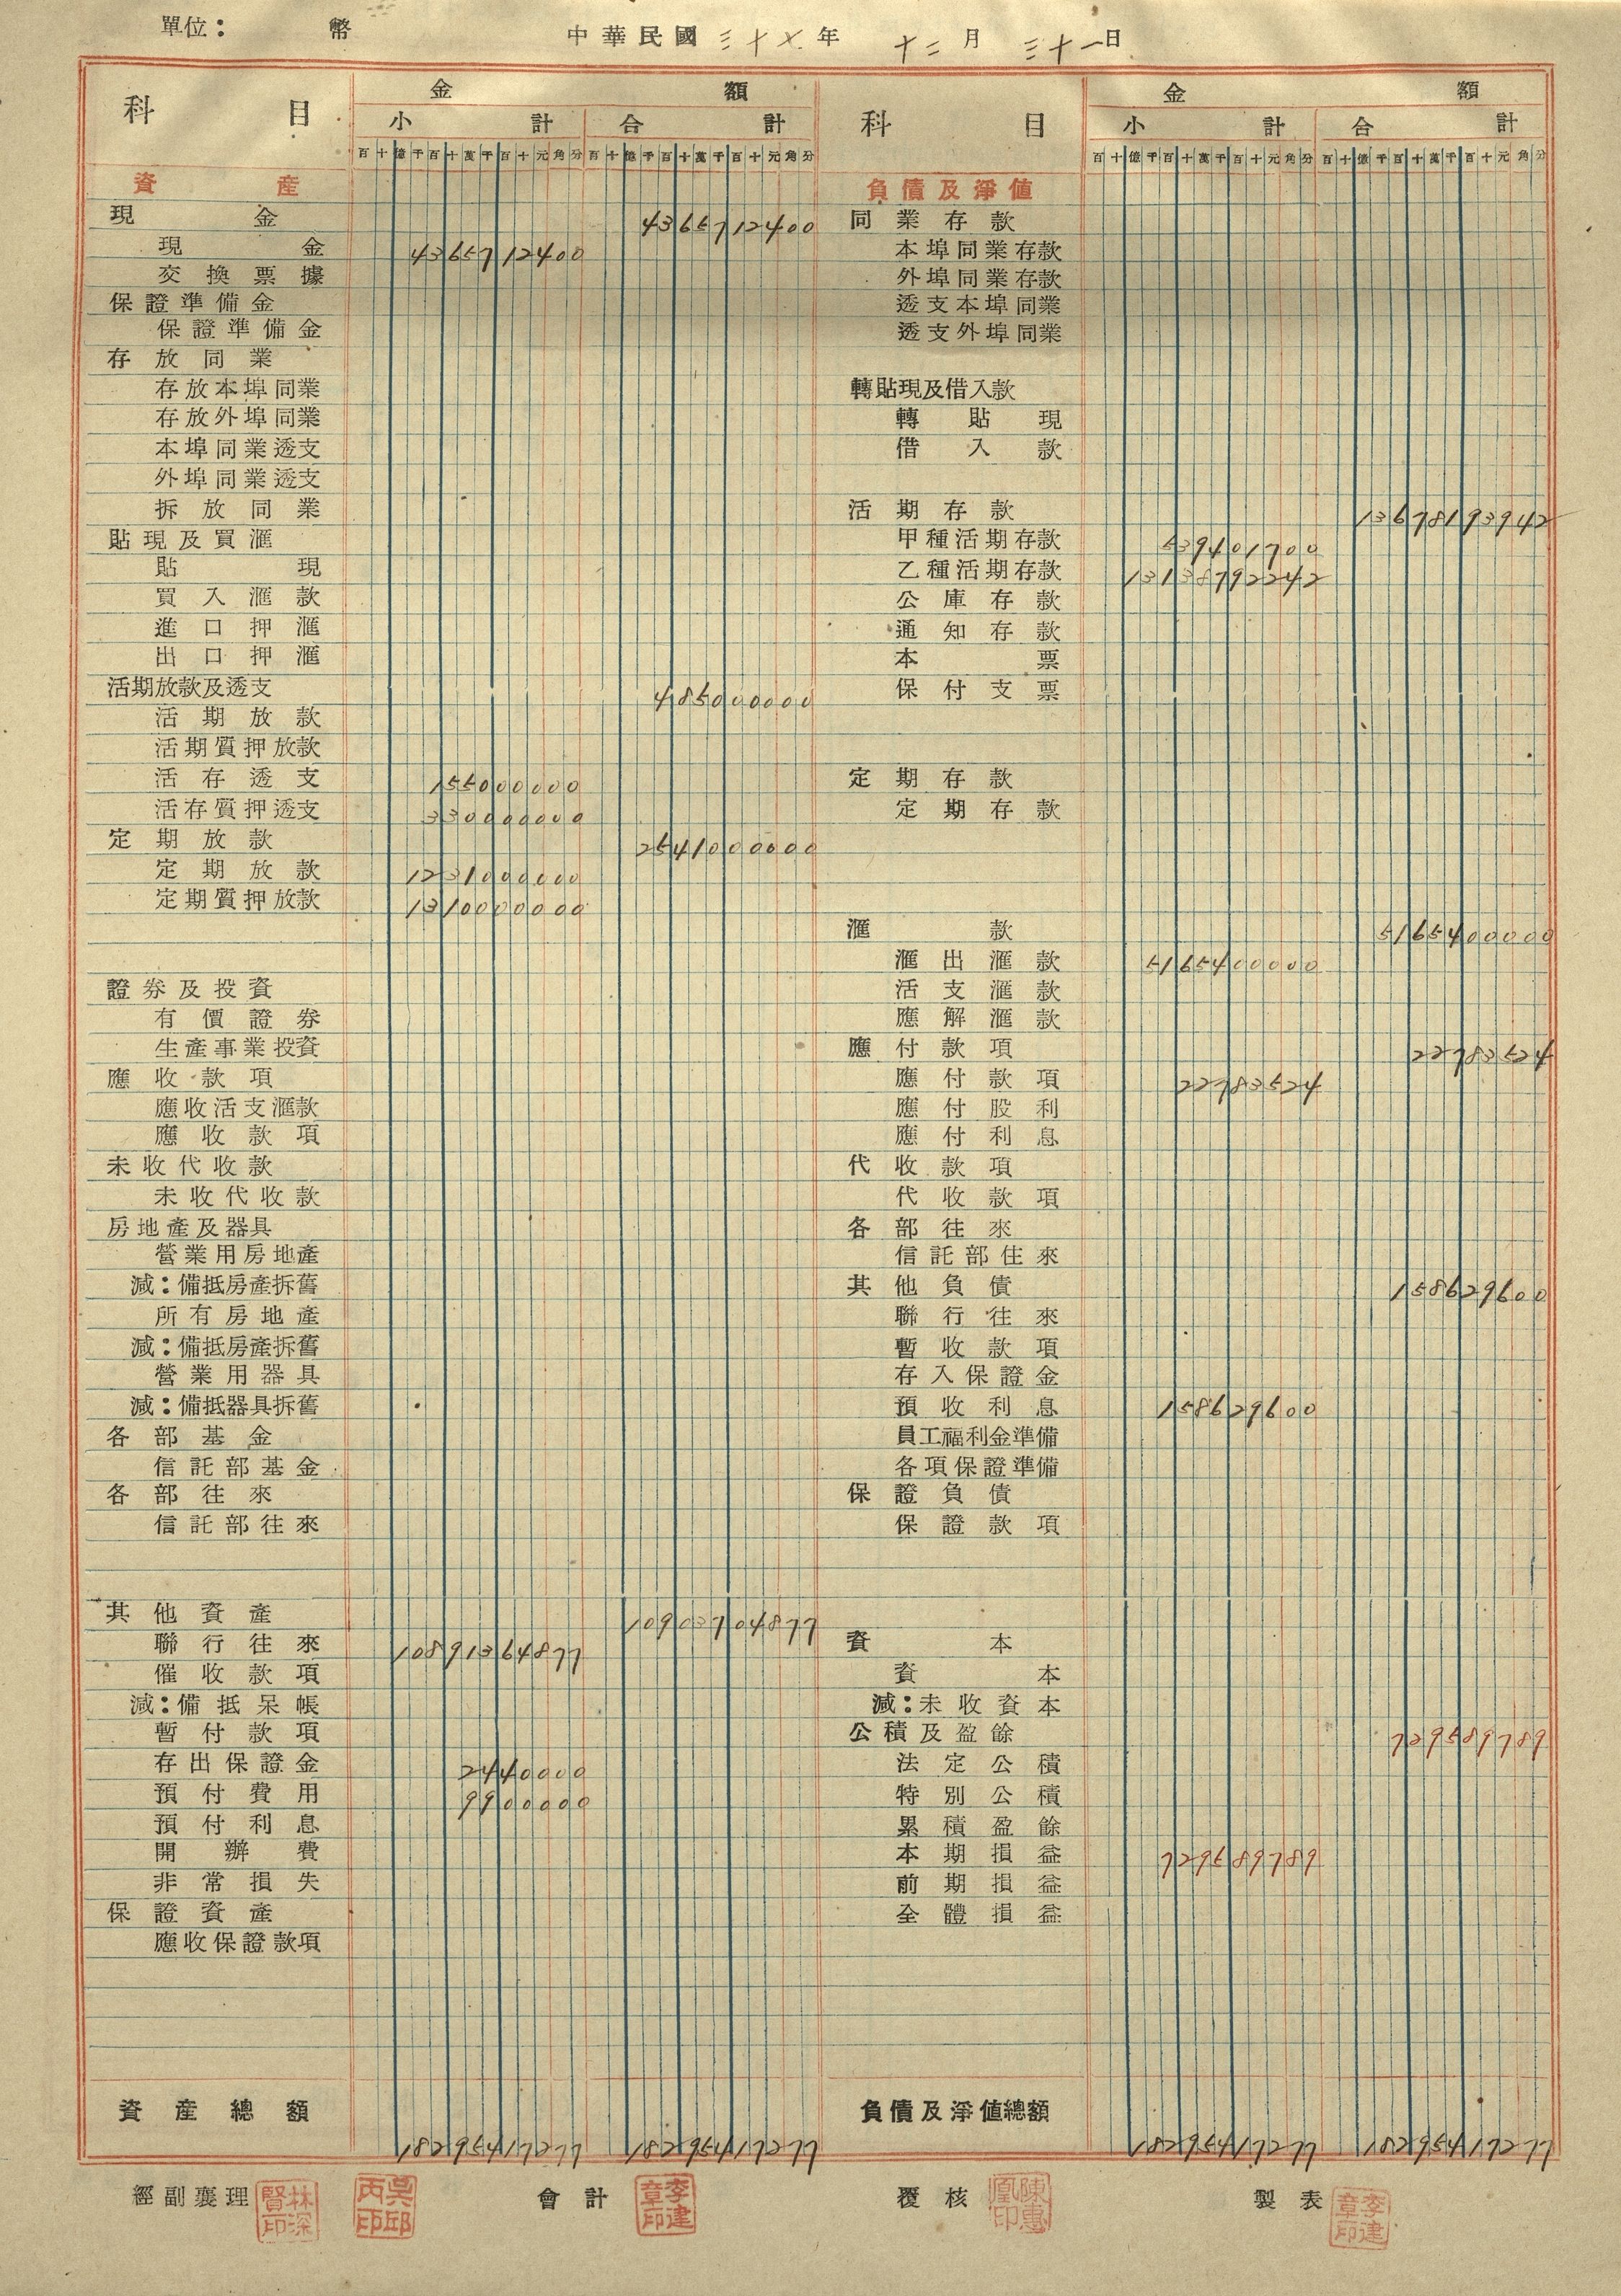 單位： 幣 中華民國三十七年 十二月 三十一日
科目 金額 科目 金額
小計 合計 小計 合計
百十億千百十萬千百十元角分 百十億千百十萬千百十元角分 百十億千百十萬千百十元角分 百十億千百十萬千百十元角分
資產
現金 4365712400
現金 4365712400
交換票據
保證準備金
保證準備金
存放同業
存放本埠同業
存放外埠同業
本埠同業透支
外埠同業透支
拆放同業
貼現及買滙
貼現
買入滙款
進口押滙
出口押滙
活期放款及透支 485000000
活期放款
活期質押放款
活存透支 155000000
活存質押透支 330000000
定期放款 2541000000
定期放款 1231000000
定期質押放款 1310000000
證券及投資
有價證券
生產事業投資
應收款項
應收活支滙款
應收款項
未收代收款
未收代收款
房地產及器具
營業用房地產
減：備抵房產拆舊
所有房地產
減：備抵房產拆舊
營業用器具
減：備抵器具拆舊
各部基金
信託部基金
各部往來
信託部往來
其他資產 10903704877
聯行往來 10891364877
催收款項
減：備抵呆帳
暫付款項
存出保證金 2440000
預付費用 9900000
預付利息
開辦費
非常損失
保證資產
應收保證款項
資產總額 18295417277 18295417277
負債及淨值
同業存款
本埠同業存款
外埠同業存款
透支本埠同業
透支外埠同業
轉貼現及借入款
轉貼現
借入款
活期存款 13678193942
甲種活期存款 539401700
乙種活期存款 13138792242
公庫存款
通知存款
本票
保付支票
定期存款
定期存款
滙款 5165400000
滙出滙款 5165400000
活支滙款
應解滙款
應付款項 22783524
應付款項 22783524
應付股利
應付利息
代收款項
代收款項
各部往來
信託部往來
其他負債 158629600
聯行往來
暫收款項
存入保證金
預收利息 158629600
員工福利金準備
各項保證準備
保證負債
保證款項
資本
資本
減：未收資本
公積及盈餘 729589789
法定公積
特別公積
累積盈餘
本期損益 729589789
前期損益
全體損益
負債及淨值總額 18295417277 18295417277
經副襄理 林深賢印 吳邱丙印 會計 李建章印 覆核 陳惠凰印 製表 李建章印